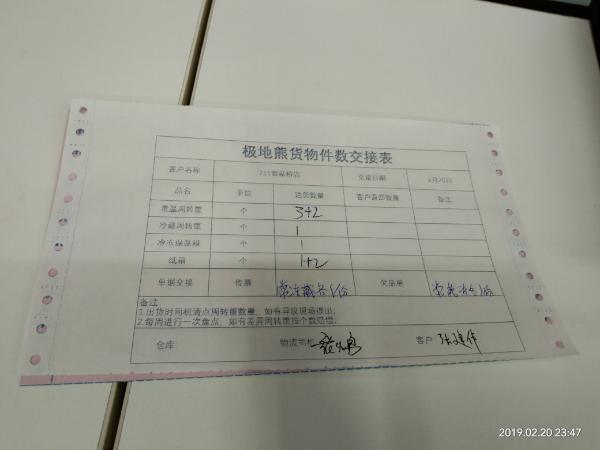 极地熊货物件数交接表
客户名称 交接日期: 2月20日
品名 单位 送货数量 客户退回数量 备注
常温周转筐 个 3+2
冷藏周转筐 个 1
冷冻保温箱 个 1
纸箱 个 1+2
单据交接 传票 欠品单
备注
1.出货时司机清点周转筐数量,如有异议现场提出;
2.每周进行一次盘点,如有差异周转筐按个数赔偿。
仓库: 物流司机: 客户:
2019.02.20 23:47